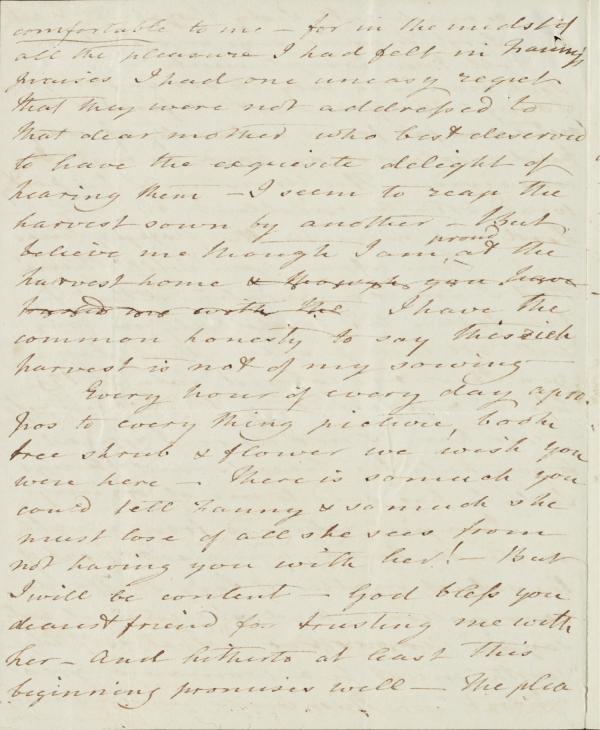 comfortable to me – for in the midst of
all the pleasure I had felt in Fanny's
praises I had one uneasy regret
that they were not addressed to
that dear mother who best deserved
to have the exquisite delight of
hearing them – I seem to reap the
harvest sown by another – But
believe me though I am proud at the
harvest home & though you have
me with the I have the
common honesty to say this rich
harvest is not of my sowing
Every hour of every day apro-
pos to every thing picture, book
tree shrub & flower we wish you
were here – There is so much you
could tell Fanny & so much she
must lose of all she sees from
not having you with her! – But
I will be content – God bless you
dearest friend for trusting me with
her – And hitherto at least this
beginning promises well – The plea